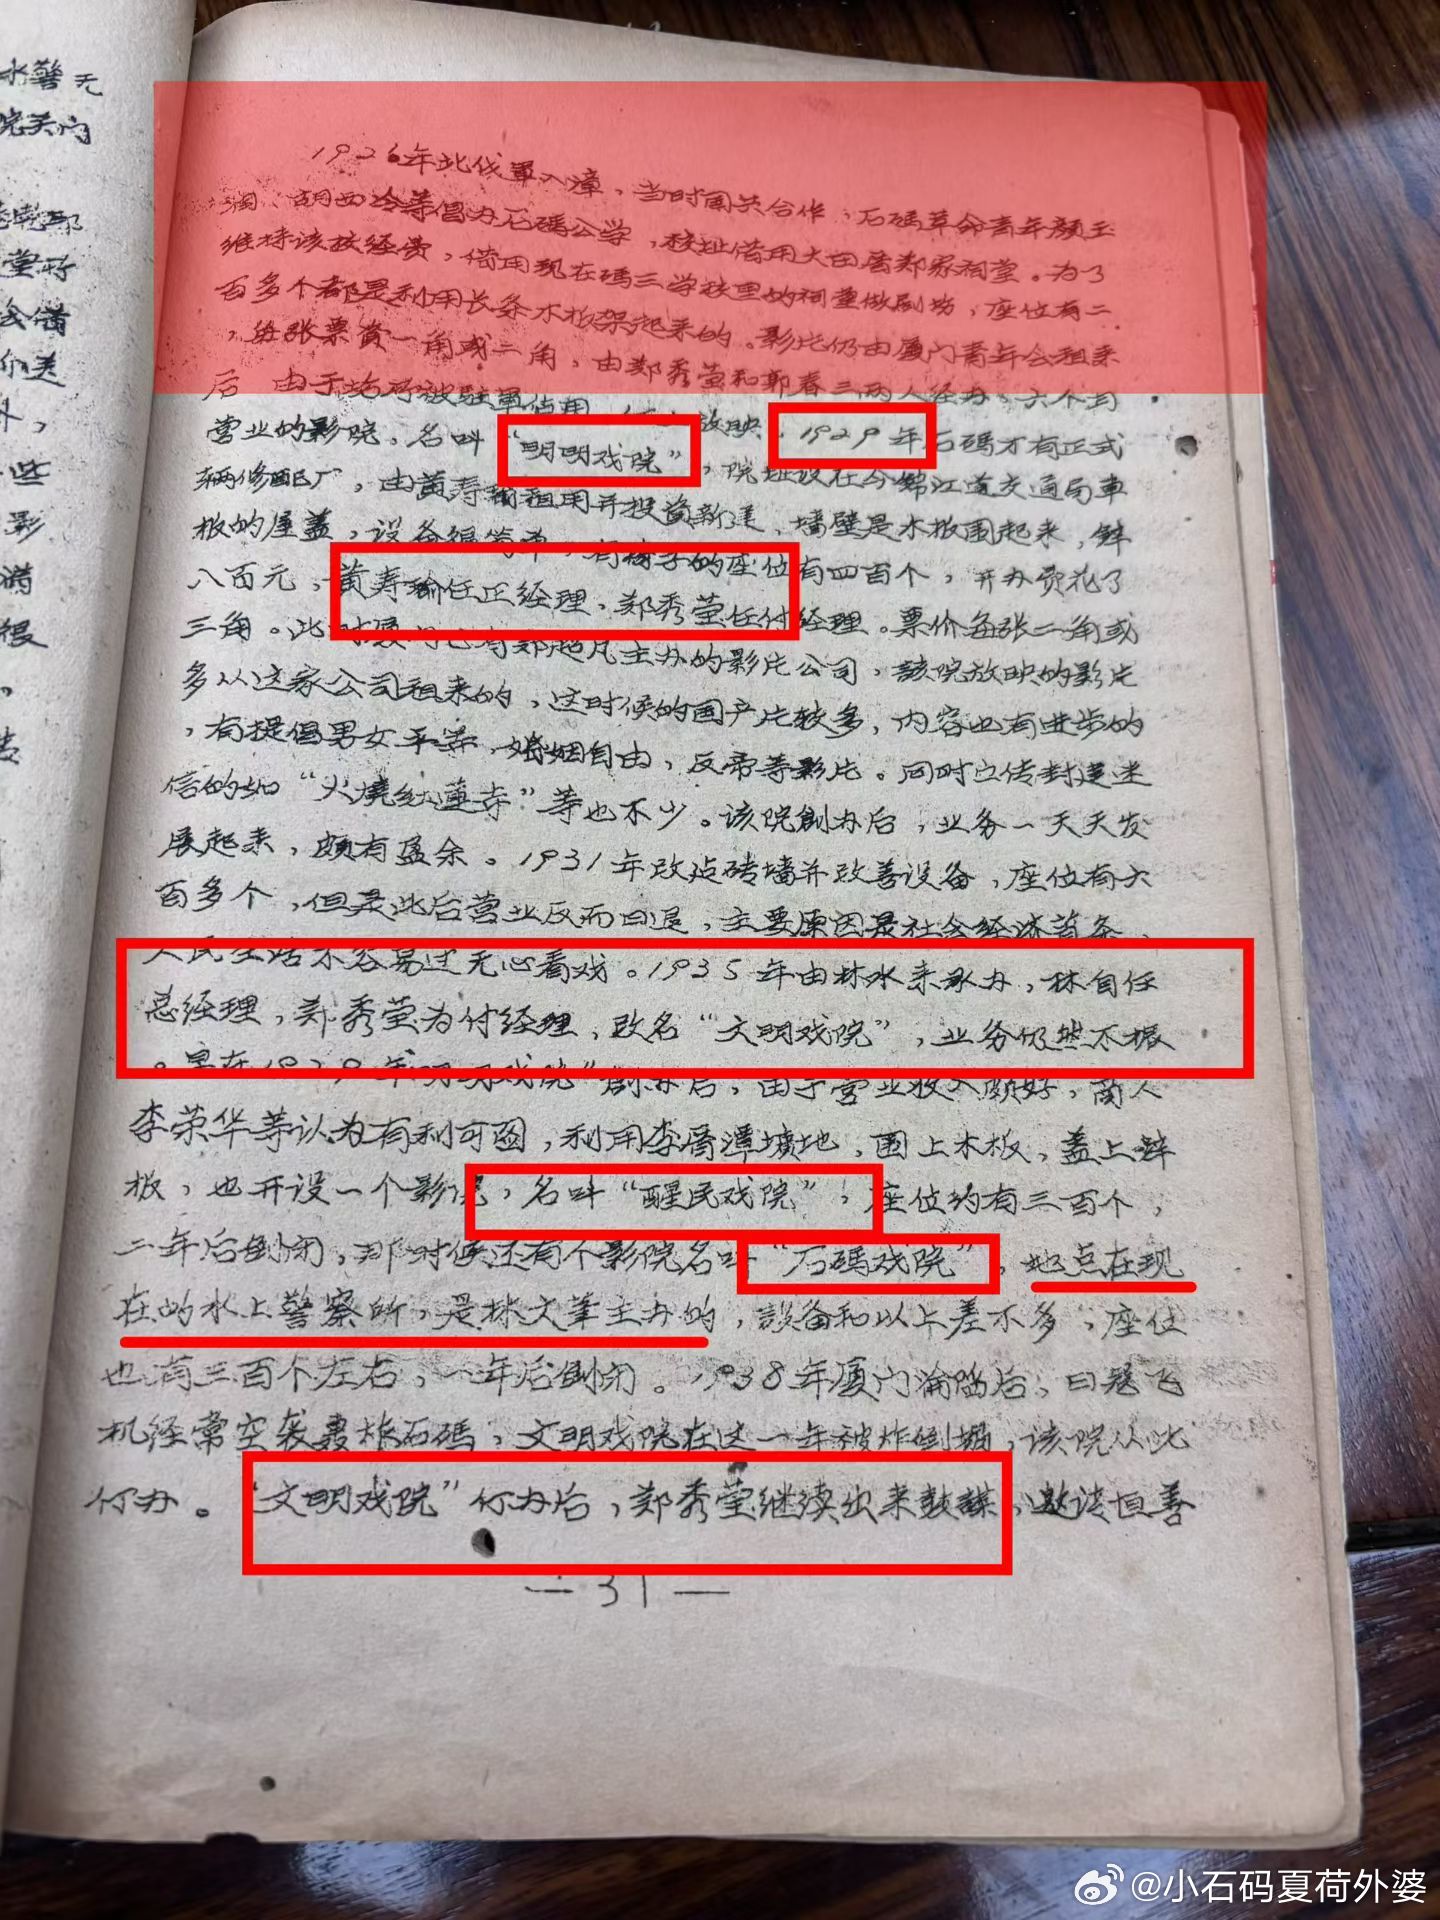 水警无
院关门
堂所
影
满
很
1926年北伐軍入漳，当时国共合作，石碼革命青年顏玉
润、胡西冷等倡办石碼公学，校址借用大田唇郑家祠堂。为了
维持该校经费，借用现在碼三学校里的祠堂做剧场，座位有二
百多个都是利用长条木板架起来的。影片仍由厦门青年会租来
，每张票賣一角或二角，由郑秀莹和郭春三两人经办，六个月
后，由于场所被駐軍佔用，放映。1929年石碼才有正式
营业的影院。名叫“明明戏院”，院址设在今锦江道交通局車
辆修配厂，由黄寿瑜租用并投資新建，墙壁是木板围起来，鋅
板的屋蓋，设备很简单，有椅子的座位有四百个，开办费花了
八百元，黄寿瑜任正经理，郑秀莹任付经理。票价每张二角或
三角。此时厦门已有郑超凡主办的影片公司，該院放映的影片
多从这家公司租来的，这时候的国产片较多，内容也有进步的
，有提倡男女平等，婚姻自由，反帝等影片。同时宣传封建迷
信的如“火燒红蓮寺”等也不少。该院創办后，业务一天天发
展起来，颇有盈余。1931年改造砖墙并改善设备，座位有六
百多个，但是此后营业反而日退，主要原因是社会经济萧条，
人民生活不容易过无心看戏。1935年由林水来承办，林自任
总经理，郑秀莹为付经理，改名“文明戏院”，业务仍然不振
。早在1929年“明明戏院”創办后，由于营业收入颇好，商人
李荣华等认为有利可图，利用李厝潭墳地，围上木板，蓋上鋅
板，也开设一个影院，名叫“醒民戏院”，座位约有三百个，
二年后倒闭，那时候还有个影院名叫“石碼戏院”，地点在现
在的水上警察所，是林文笔主办的，設备和以上差不多，座位
也有三百个左右，一年后倒闭。1938年厦门淪陷后，日寇飞
机经常空袭轰炸石碼，文明戏院在这一年被炸倒塌，该院从此
仃办。“文明戏院”仃办后，郑秀莹继续出来鼓謀，邀请恒善
—31—
@小石码夏荷外婆